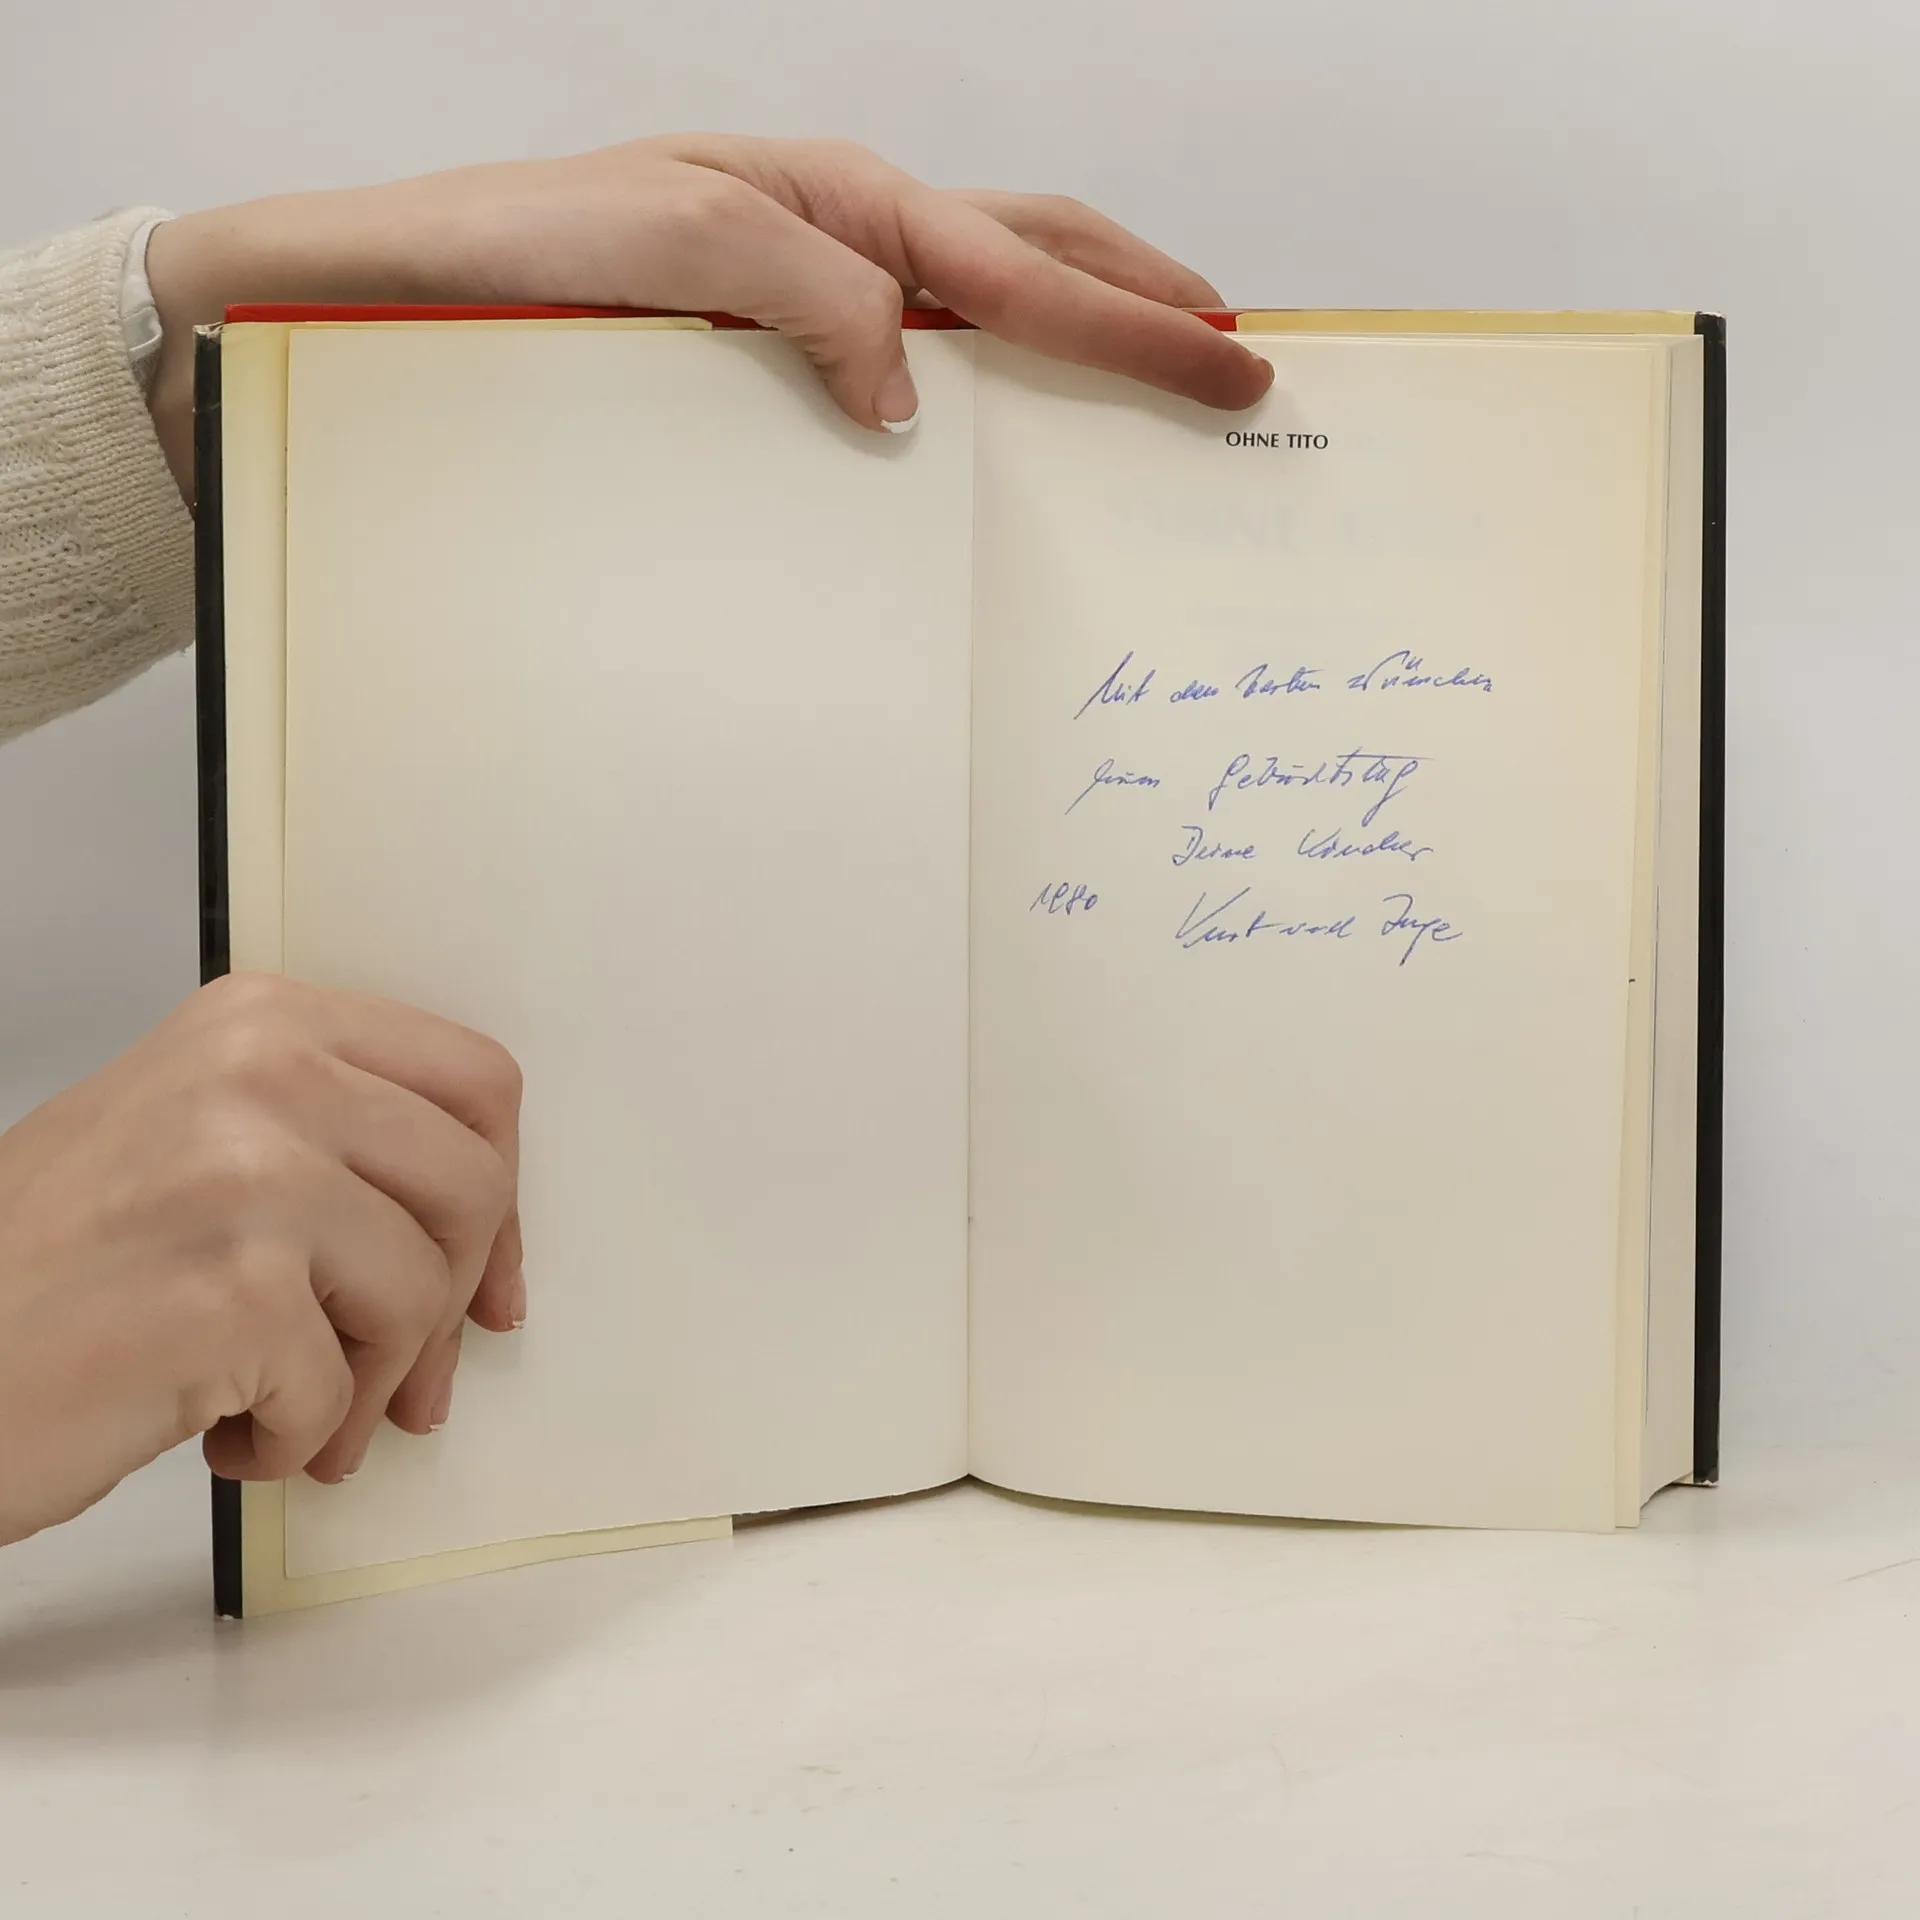 OHNE TITO
Mit den besten Wünschen
zum Geburtstag
Deine Kinder
1980 Kurt und Inge